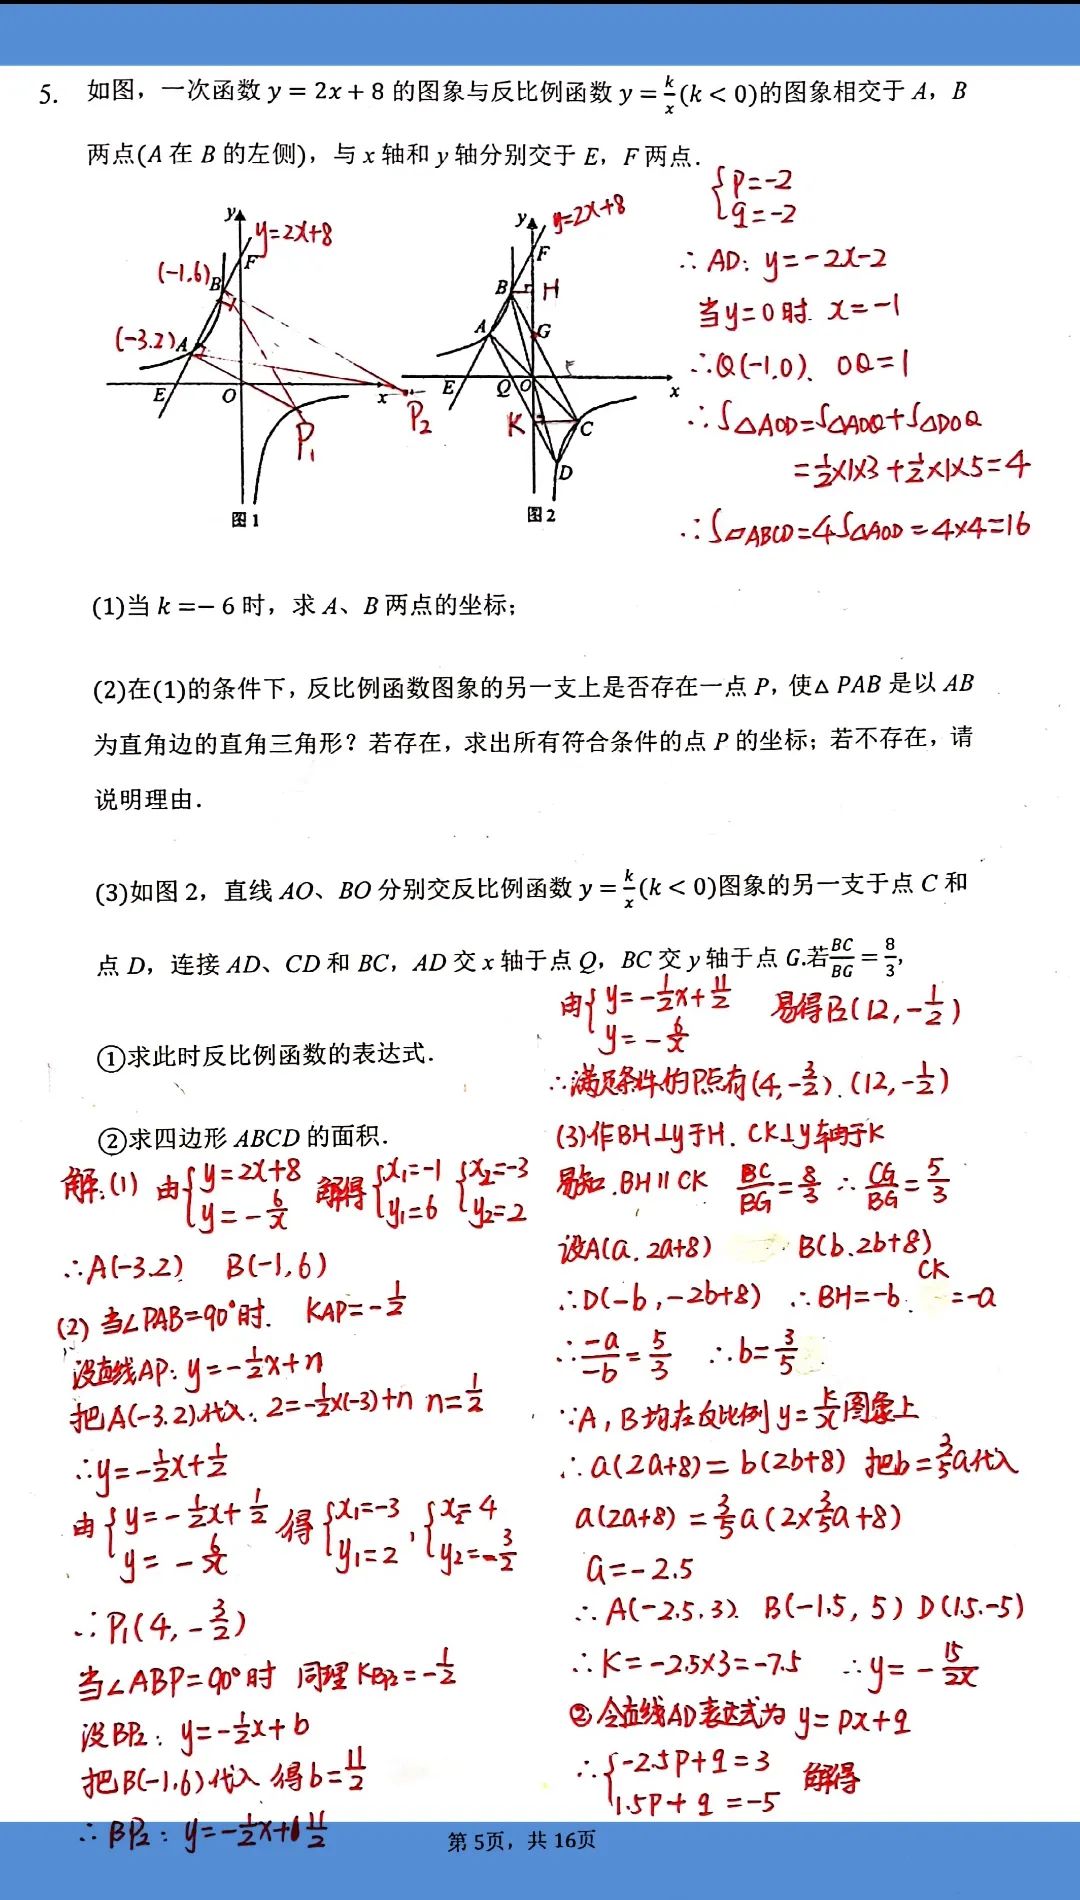 5. 如图，一次函数 y = 2x + 8 的图象与反比例函数 y = k/x (k < 0)的图象相交于 A，B
两点(A 在 B 的左侧)，与 x 轴和 y 轴分别交于 E，F 两点.
y
y=2x+8
F
(-1.6)
B
(-3.2)
A
E
O
x
P₁
P₂
图 1
y
y=2x+8
F
B
H
A
G
E
Q
O
x
K
C
D
图 2
{p=-2
q=-2
∴AD: y=-2x-2
当y=0时. x=-1
∴Q(-1.0). OQ=1
∴S△AOD=S△AOQ+S△DOQ
=1/2×1×3+1/2×1×5=4
∴S▱ABCD=4S△AOD=4×4=16
(1)当 k =− 6 时，求 A、B 两点的坐标；
(2)在(1)的条件下，反比例函数图象的另一支上是否存在一点 P，使△ PAB 是以 AB
为直角边的直角三角形？若存在，求出所有符合条件的点 P 的坐标；若不存在，请
说明理由.
(3)如图 2，直线 AO、BO 分别交反比例函数 y = k/x (k < 0)图象的另一支于点 C 和
点 D，连接 AD、CD 和 BC，AD 交 x 轴于点 Q，BC 交 y 轴于点 G.若 BC/BG = 8/3，
①求此时反比例函数的表达式.
②求四边形 ABCD 的面积.
解:(1) 由{y=2x+8
y=-6/x 解得{x₁=-1
y₁=6 {x₂=-3
y₂=2
∴A(-3.2) B(-1,6)
(2) 当∠PAB=90°时. KAP=-1/2
设直线AP: y=-1/2x+n
把A(-3.2)代入. 2=-1/2×(-3)+n n=1/2
∴y=-1/2x+1/2
由{y=-1/2x+1/2
y=-6/x 得{x₁=-3
y₁=2 , {x₂=4
y₂=-3/2
∴P₁(4,-3/2)
当∠ABP=90°时 同理KBP₂=-1/2
设BP₂: y=-1/2x+b
把B(-1,6)代入 得b=11/2
∴BP₂: y=-1/2x+11/2
由{y=-1/2x+11/2
y=-6/x 易得P₂(12,-1/2)
∴满足条件的P点有(4,-3/2).(12,-1/2)
(3)作BH⊥y于H. CK⊥y轴于K
易知.BH∥CK BC/BG=8/3 ∴CG/BG=5/3
设A(a.2a+8) B(b.2b+8)
∴D(-b,-2b+8) ∴BH=-b. CK=-a
∴-a/-b=5/3 ∴b=3/5
∵A,B均在反比例y=k/x图象上
∴a(2a+8)=b(2b+8) 把b=3/5a代入
a(2a+8)=3/5a(2×3/5a+8)
a=-2.5
∴A(-2.5.3). B(-1.5,5) D(1.5.-5)
∴K=-2.5×3=-7.5 ∴y=-15/2x
②令直线AD表达式为 y=px+q
∴{-2.5p+q=3
1.5p+q=-5 解得
第 5页，共 16页